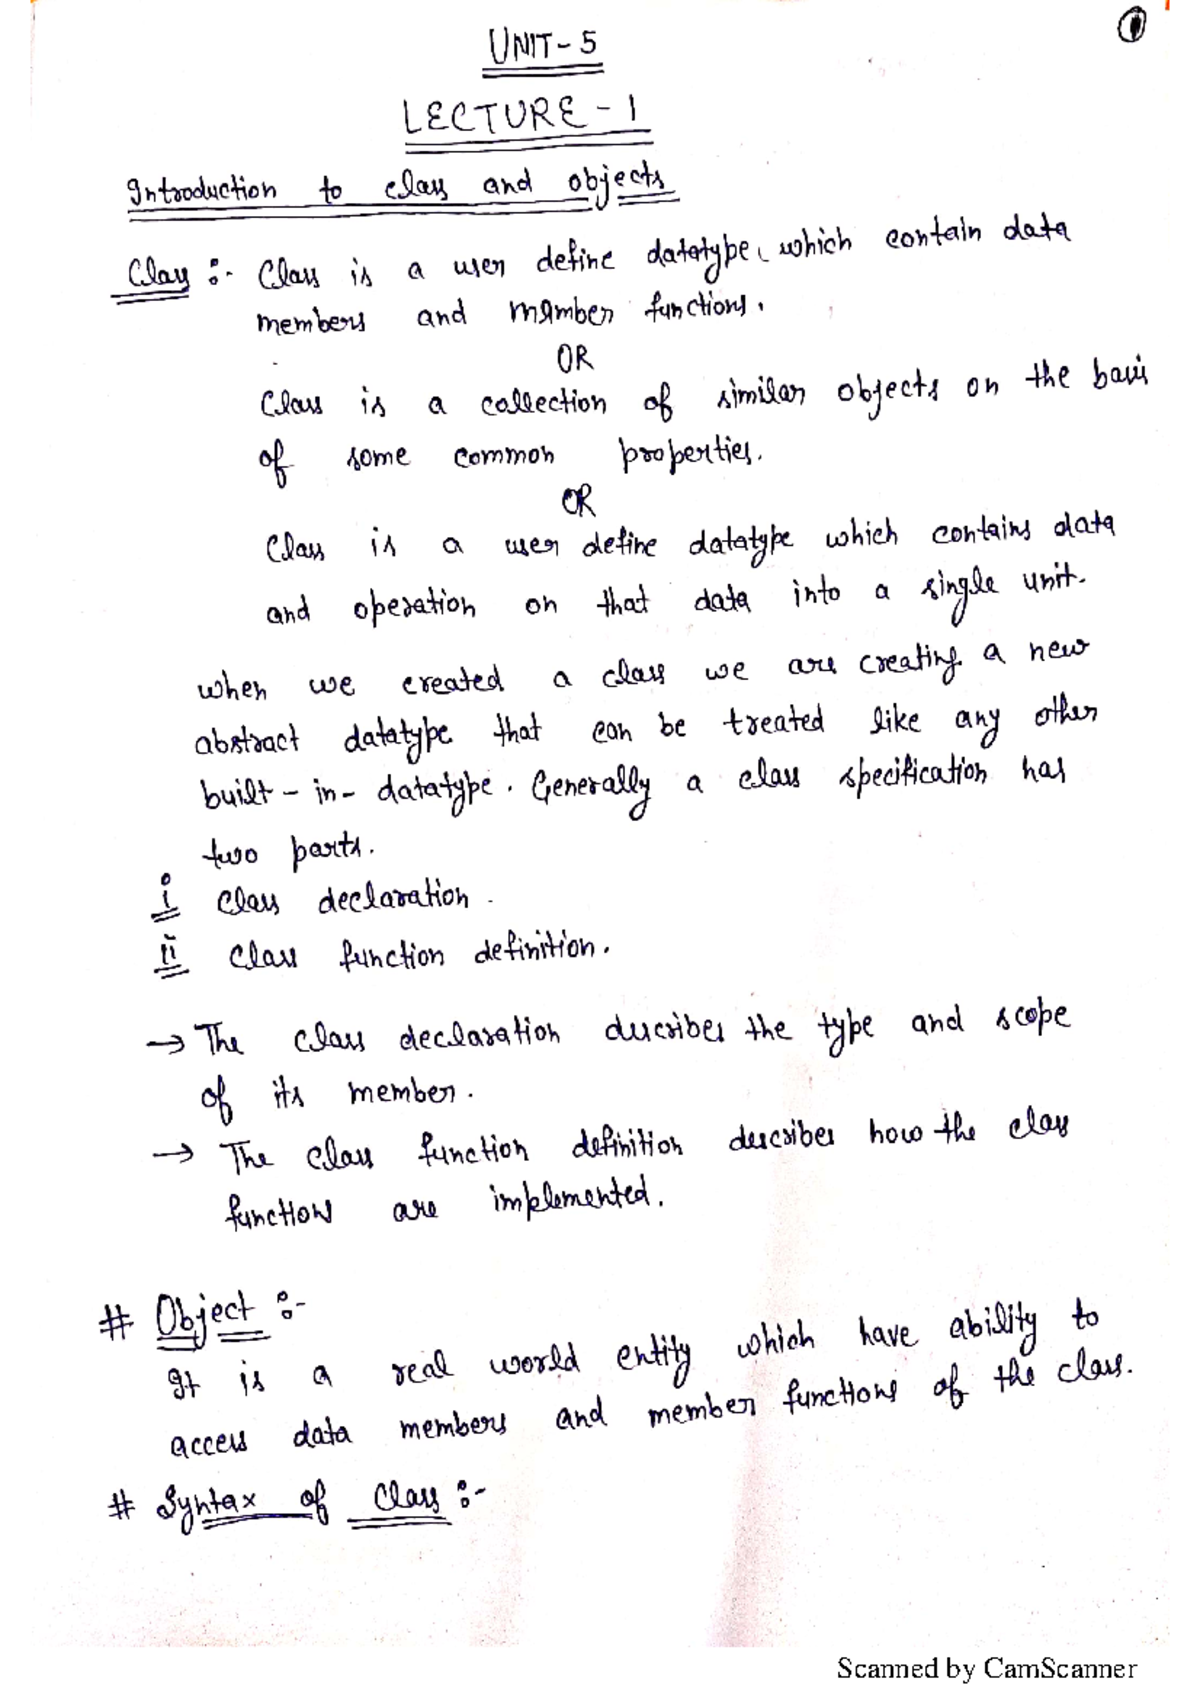 1
UNIT-5
LECTURE-1
Introduction to class and objects
Class :- Class is a user define datatype, which contain data
members and member functions.
OR
Class is a collection of similar objects on the basis
of some common properties.
OR
Class is a user define datatype which contains data
and operation on that data into a single unit.
when we created a class we are creating a new
abstract datatype that can be treated like any other
built-in-datatype. Generally a class specification has
two parts.
i class declaration.
ii class function definition.
→ The class declaration describes the type and scope
of its member.
→ The class function definition describes how the class
functions are implemented.
# Object :-
It is a real world entity which have ability to
access data members and member functions of the class.
# Syntax of Class :-
Scanned by CamScanner